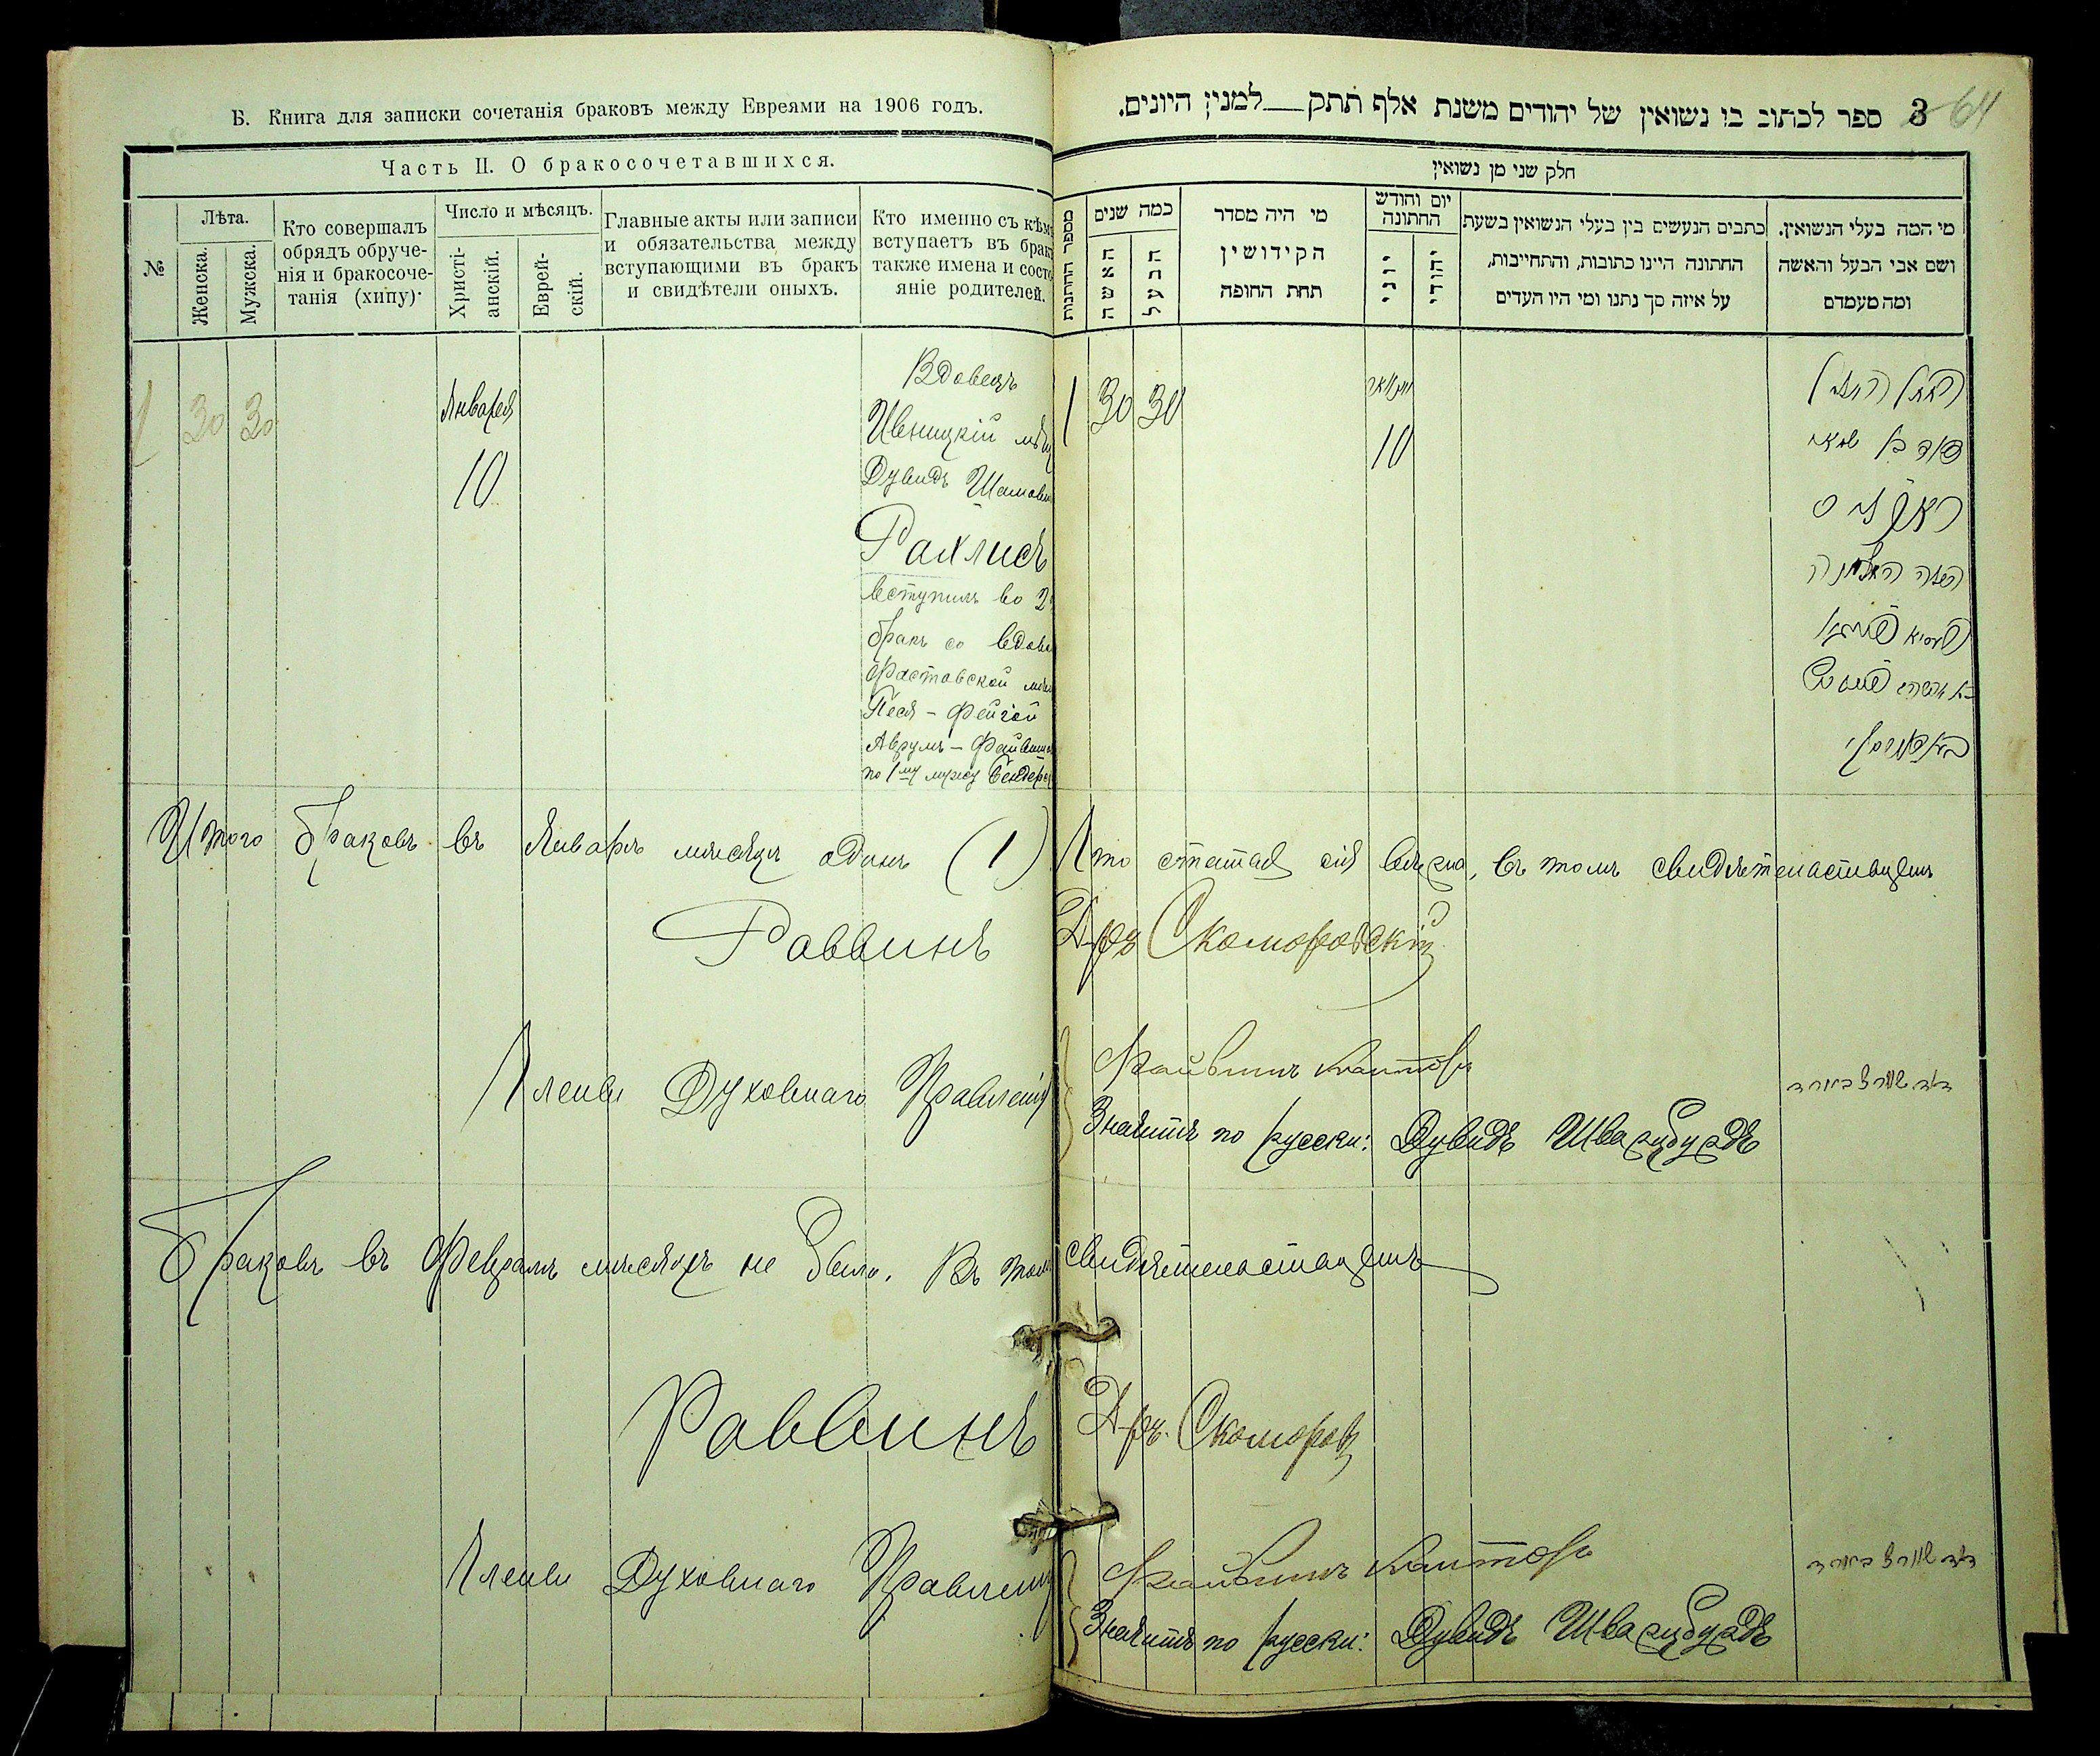 Б. Книга для записки сочетанія браковъ между Евреями на 1906 годъ.
Часть II. О бракосочетавшихся.
№
Лѣта.
Женска.
Мужска.
Кто совершалъ
обрядъ обруче-
нія и бракосоче-
танія (хипу).
Число и мѣсяцъ.
Христі-
анскій.
Еврей-
скій.
Главные акты или записи
и обязательства между
вступающими въ бракъ
и свидѣтели оныхъ.
Кто именно съ кѣмъ
вступаетъ въ бракъ
также имена и состо
яніе родителей.
1 30 30
Января
10
Вдовецъ
Ивницкій мѣщ
Дувидъ Шамовъ
Рахлисъ
вступилъ во 2
бракъ со вдовой
Фастовской мѣщ
Песя-Фейгой
Аврумъ-Файвиш
по 1му мужу Бендерск
Итого браковъ въ Январѣ мѣсяцѣ одинъ (1)
Раввинъ
Члены Духовнаго Правленія
Браковъ въ Февралѣ мѣсяцѣ не было. Въ томъ
Раввинъ
Члены Духовнаго Правленія
3 ספר לכתוב בו נשואין של יהודים משנת אלף תתק למנין היונים.
64
חלק שני מן נשואין
מספר החתנות
כמה שנים
האשה
הבעל
מי היה מסדר
הקידושין
תחת החופה
יום וחודש
החתונה
יוני
יהודי
כתבים הנעשים בין בעלי הנשואין בשעת
החתונה היינו כתובות, והתחייבות,
על איזה סך נתנו ומי היו העדים
מי המה בעלי הנשואין.
ושם אבי הבעל והאשה
ומה מעמדם
1 30 30
יאנואר
10
Что статья сія вѣрна, въ томъ свидѣтельствуемъ
Д-ръ Скоморовскій
Файвишъ Канторъ
Значитъ по русски: Дувидъ Шварцбурдъ
דוד שווארצבורד
свидѣтельствуемъ
Д-ръ. Скоморов
Файвишъ Канторъ
Значитъ по русски: Дувидъ Шварцбурдъ
דוד שווארצבורד